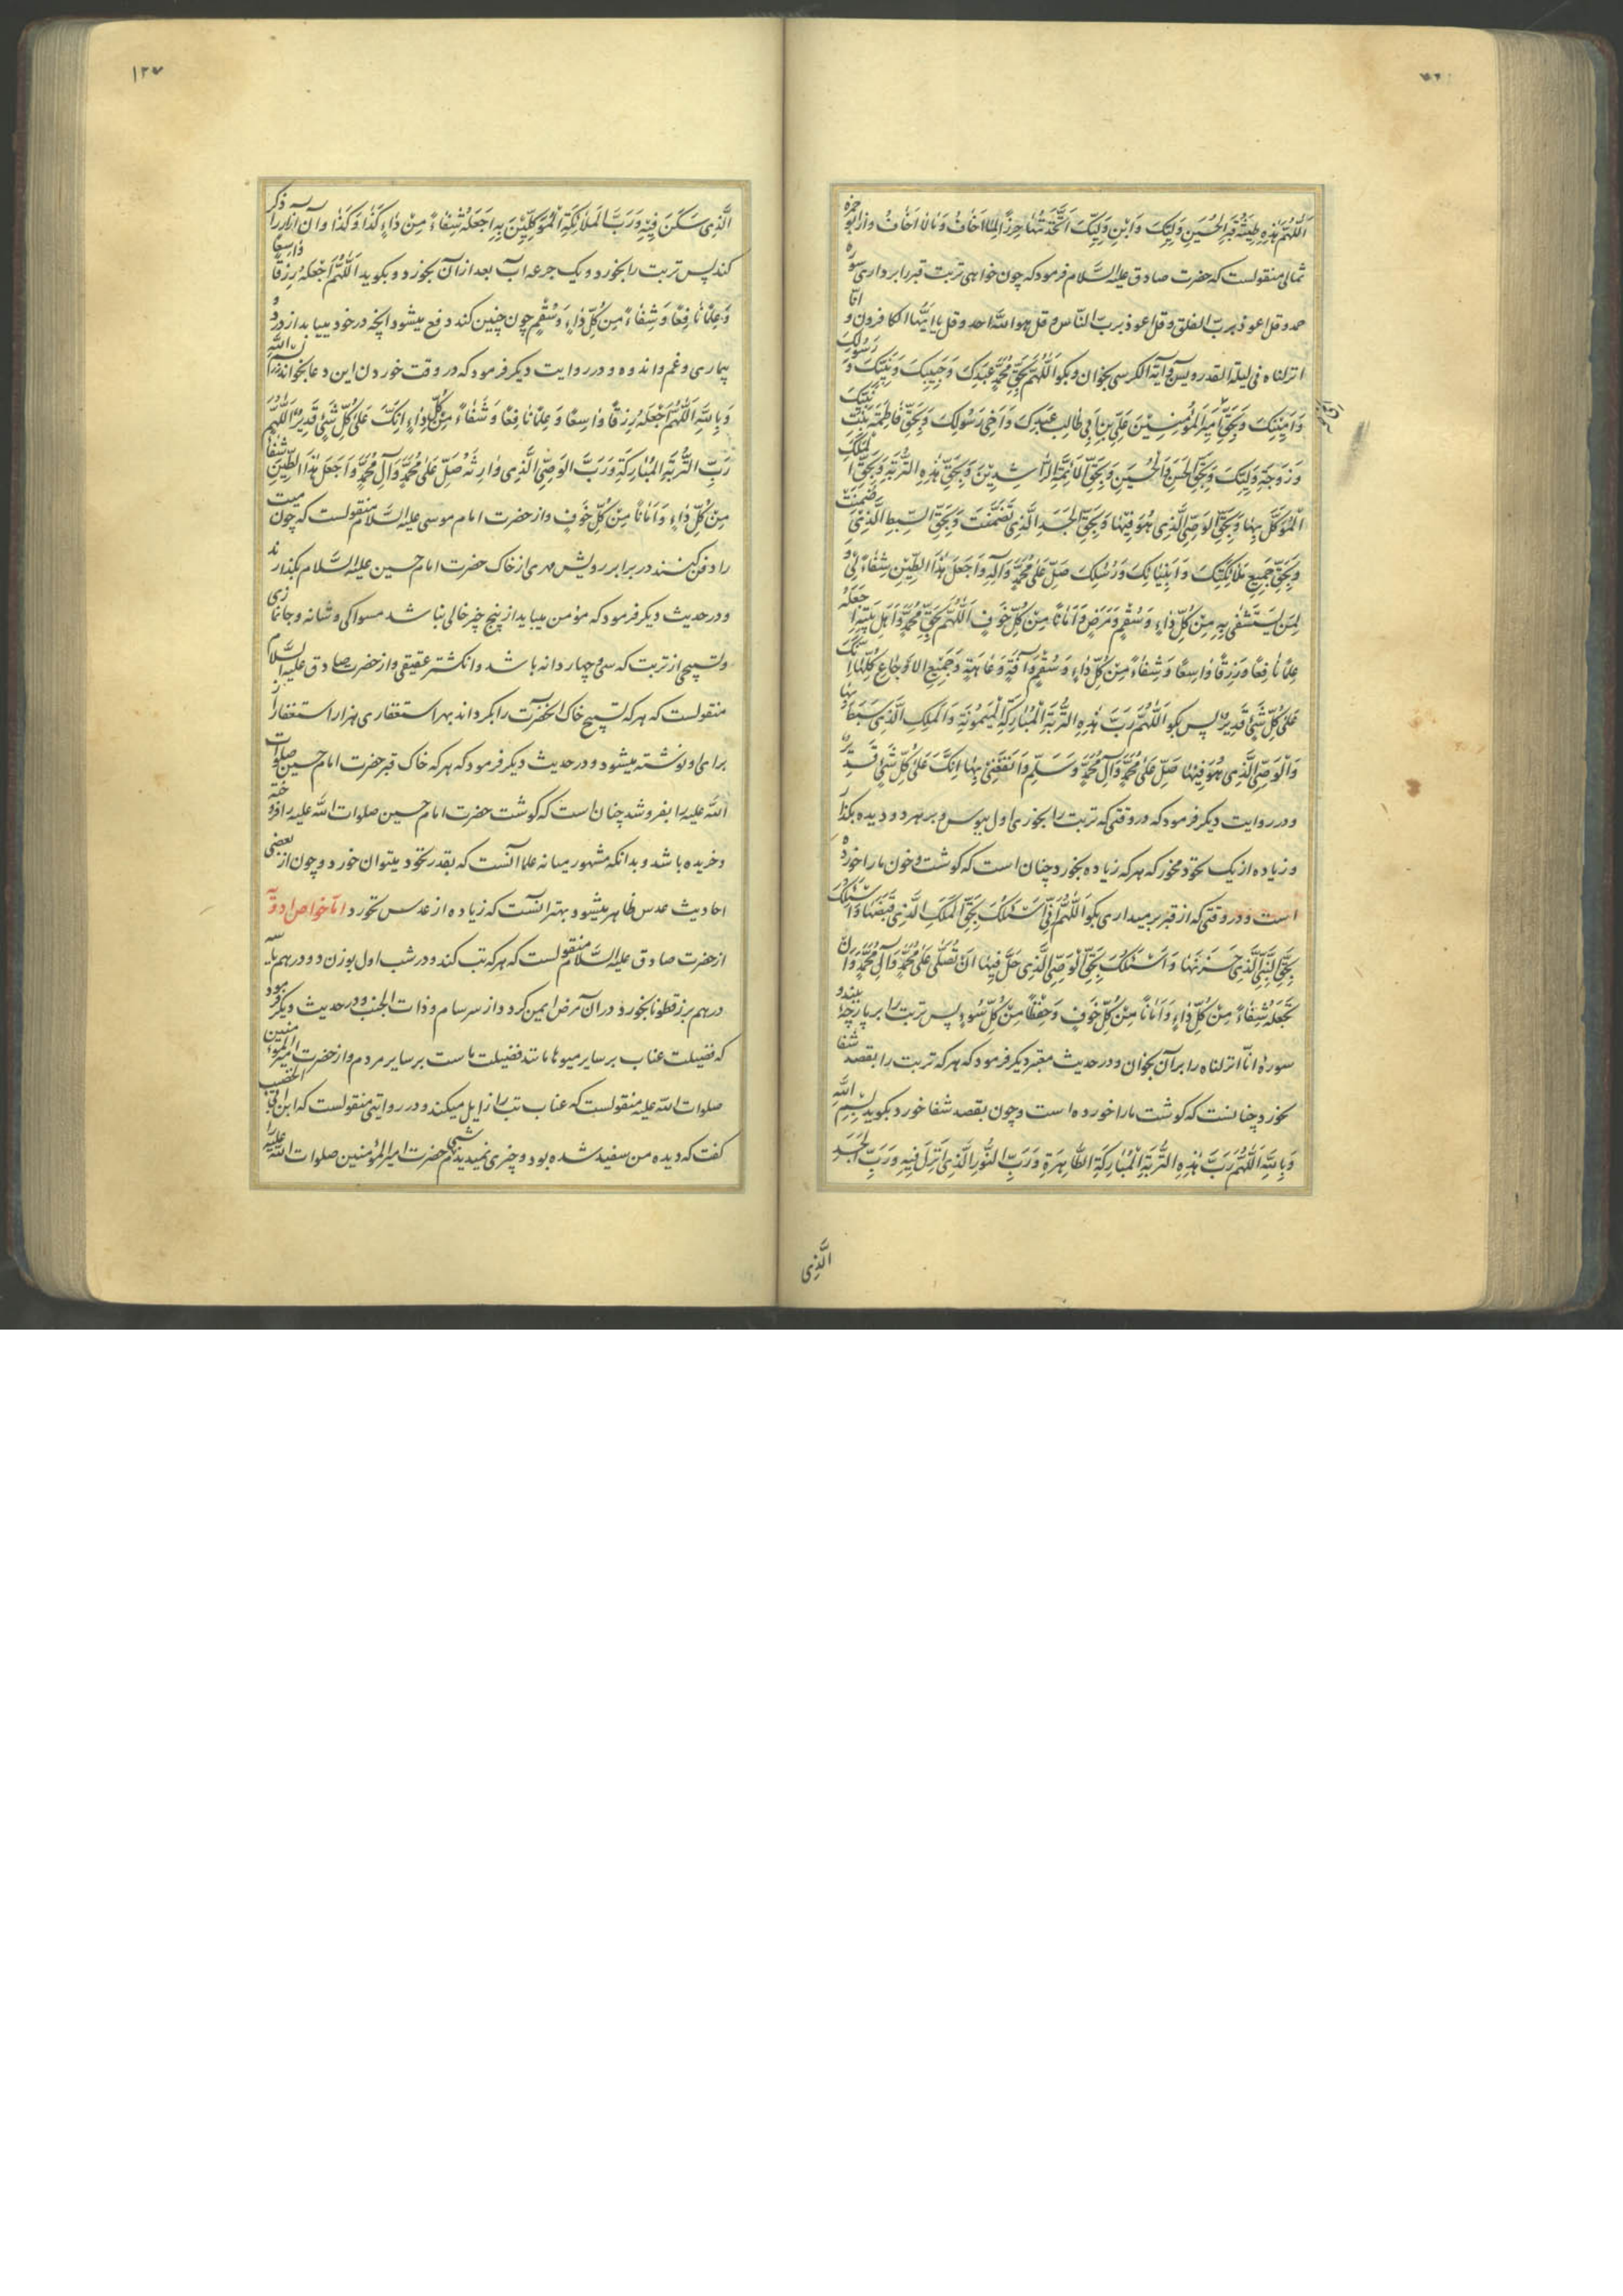 اَللّهُمَّ هٰذِهِ طينَةُ قَبْرِ الْحُسَيْنِ وَلِيِّكَ وَابْنِ وَلِيِّكَ اتَّخَذْتُهٰا حِرْزًا لِمٰا اَخٰافُ وَمٰا لٰا اَخٰافُ و از ابو حمزه
ثمالی منقولست که حضرت صادق علیه السّلام فرمود که چون خواهی تربت قبر را برداری سوره
حمد و قل اعوذ بربّ الفلق و قل اعوذ بربّ النّاس و قل هو اللّه احد و قل یا ایّها الکافرون و انّا
انزلناه فی لیلة القدر و یس و آیة الکرسی بخوان و بکو اَللّهُمَّ بِحَقِّ مُحَمَّدٍ عَبْدِكَ وَحَبيبِكَ وَنَبِيِّكَ وَرَسُولِكَ
وَاَمينِكَ وَبِحَقِّ اَميرِ الْمُؤْمِنينَ عَلِىِّ بْنِ اَبي طٰالِبٍ عَبْدِكَ وَاَخي رَسُولِكَ وَبِحَقِّ فٰاطِمَةَ بِنْتِ نَبِيِّكَ
وَزَوْجَةِ وَلِيِّكَ وَبِحَقِّ الْحَسَنِ وَالْحُسَيْنِ وَبِحَقِّ الْاَئِمَّةِ الرّٰاشِدينَ وَبِحَقِّ هٰذِهِ التُّرْبَةِ وَبِحَقِّ الْمَلَكِ
الْمُوَكَّلِ بِهٰا وَبِحَقِّ الْوَصِىِّ الَّذي هُوَ فيهٰا وَبِحَقِّ الْجَسَدِ الَّذي تَضَمَّنَتْ وَبِحَقِّ السِّبْطِ الَّذي ضَمِنَتْ
وَبِحَقِّ جَميعِ مَلٰائِكَتِكَ وَاَنْبِيٰائِكَ وَرُسُلِكَ صَلِّ عَلىٰ مُحَمَّدٍ وَآلِهِ وَاجْعَلْ هٰذَا الطّينَ شِفٰاءً لي وَ
لِمَنْ يَسْتَشْفي بِهِ مِنْ كُلِّ دٰاءٍ وَسُقْمٍ وَمَرَضٍ وَاَمٰانًا مِنْ كُلِّ خَوْفٍ اَللّهُمَّ بِحَقِّ مُحَمَّدٍ وَاَهْلِ بَيْتِهِ اجْعَلْهُ
عِلْمًا نٰافِعًا وَرِزْقًا وٰاسِعًا وَشِفٰاءً مِنْ كُلِّ دٰاءٍ وَسُقْمٍ وَآفَةٍ وَعٰاهَةٍ وَجَميعِ الاَوْجٰاعِ كُلِّهٰا اِنَّكَ
عَلىٰ كُلِّ شَىْءٍ قَديرٌ پس بکو اَللّهُمَّ رَبَّ هٰذِهِ التُّرْبَةِ الْمُبٰارَكَةِ الْمَيْمُونَةِ وَالْمَلَكِ الَّذي هَبَطَ بِهٰا
وَالْوَصِىِّ الَّذي هُوَ فيهٰا صَلِّ عَلىٰ مُحَمَّدٍ وَآلِ مُحَمَّدٍ وَسَلِّمْ وَانْفَعْني بِهٰا اِنَّكَ عَلىٰ كُلِّ شَىْءٍ قَديرٌ
و در روایت دیکر فرمود که در وقتی که تربت را بخوری اول ببوس و بر هر دو دیده بکذار
و زیاده از یک نخود مخور که هر که زیاده بخورد چنان است که کوشت و خون ما را خورده
است و در وقتی که از قبر برمیداری بکو اَللّهُمَّ اِنّي اَسْئَلُكَ بِحَقِّ الْمَلَكِ الَّذي قَبَضَهٰا وَاَسْئَلُكَ
بِحَقِّ النَّبِىِّ الَّذي خَزَنَهٰا وَاَسْئَلُكَ بِحَقِّ الْوَصِىِّ الَّذي حَلَّ فيهٰا اَنْ تُصَلِّىَ عَلىٰ مُحَمَّدٍ وَآلِ مُحَمَّدٍ وَاَنْ
تَجْعَلَهُ شِفٰاءً مِنْ كُلِّ دٰاءٍ وَاَمٰانًا مِنْ كُلِّ خَوْفٍ وَحِفْظًا مِنْ كُلِّ سُوءٍ پس تربت را بر پارچه بیند و
سوره انّا انزلناه را بر آن بخوان و در حدیث معتبر دیکر فرمود که هر که تربت را بقصد شفا
بخورد چنانست که کوشت ما را خورده است و چون بقصد شفا خورد بکوید بِسْمِ اللّٰهِ
وَبِاللّٰهِ اَللّهُمَّ رَبَّ هٰذِهِ التُّرْبَةِ الْمُبٰارَكَةِ الطّٰاهِرَةِ وَرَبَّ النُّورِ الَّذي اُنْزِلَ فيهِ وَرَبَّ الْجَسَدِ
الَّذي
۱۲۷
الَّذي سَكَنَ فيهِ وَرَبَّ الْمَلٰائِكَةِ الْمُوَكَّلينَ بِهِ اجْعَلْهُ شِفٰاءً مِنْ دٰاءِ كَذٰا وَكَذٰا و آن آزار را ذکر
کند پس تربت را بخورد و یک جرعه آب بعد از آن بخورد و بکوید اَللّهُمَّ اجْعَلْهُ رِزْقًا وٰاسِعًا
وَعِلْمًا نٰافِعًا وَشِفٰاءً مِنْ كُلِّ دٰاءٍ وَسُقْمٍ چون چنین کند دفع میشود آنچه در خود مییابد از درد و
بیماری و غم و اندوه و در روایت دیکر فرمود که در وقت خوردن این دعا بخواند بِسْمِ اللّٰهِ
وَبِاللّٰهِ اَللّهُمَّ اجْعَلْهُ رِزْقًا وٰاسِعًا وَعِلْمًا نٰافِعًا وَشِفٰاءً مِنْ كُلِّ دٰاءٍ اِنَّكَ عَلىٰ كُلِّ شَىْءٍ قَديرٌ اَللّهُمَّ
رَبَّ التُّرْبَةِ الْمُبٰارَكَةِ وَرَبَّ الْوَصِىِّ الَّذي وٰارَتْهُ صَلِّ عَلىٰ مُحَمَّدٍ وَآلِ مُحَمَّدٍ وَاجْعَلْ هٰذَا الطّينَ شِفٰاءً
مِنْ كُلِّ دٰاءٍ وَاَمٰانًا مِنْ كُلِّ خَوْفٍ و از حضرت امام موسی علیه السّلام منقولست که چون میت
را دفن کنند در برابر رویش مهری از خاک حضرت امام حسین علیه السّلام بکذارند
و در حدیث دیکر فرمود که مؤمن میباید از پنج چیز خالی نباشد مسواکی و شانه و جانمازی
و تسبیحی از تربت که سی و چهار دانه باشد و انکشتر عقیقی و از حضرت صادق علیه السّلام
منقولست که هر که تسبیح خاک آنحضرت را بکرداند بهر استغفاری هزار استغفار از
برای او نوشته میشود و در حدیث دیکر فرمود که هر که خاک قبر حضرت امام حسین صلوات
اللّه علیه را بفروشد چنان است که کوشت حضرت امام حسین صلوات اللّه علیه را فروخته
و خریده باشد و بدانکه مشهور میانه علما آنست که بقدر نخود میتوان خورد و چون از بعضی
احادیث عدس ظاهر میشود بهتر آنست که زیاده از عدس نخورد امّا خواص ادویه
از حضرت صادق علیه السّلام منقولست که هر که تب کند و در شب اول بوزن دو درهم یا سه
درهم بزرقطونا بخورد در آن مرض ایمن کردد از سرسام و ذات الجنب و در حدیث دیکر فرمود
که فضیلت عناب بر سایر میوها مانند فضیلت ماست بر سایر مردم و از حضرت امیر المؤمنین
صلوات اللّه علیه منقولست که عناب تب را زایل میکند و در روایتی منقولست که ابن ابی الخضیب
کفت که دیده من سفید شده بود و چیزی نمیدیدم شبی حضرت امیر المؤمنین صلوات اللّه علیه را